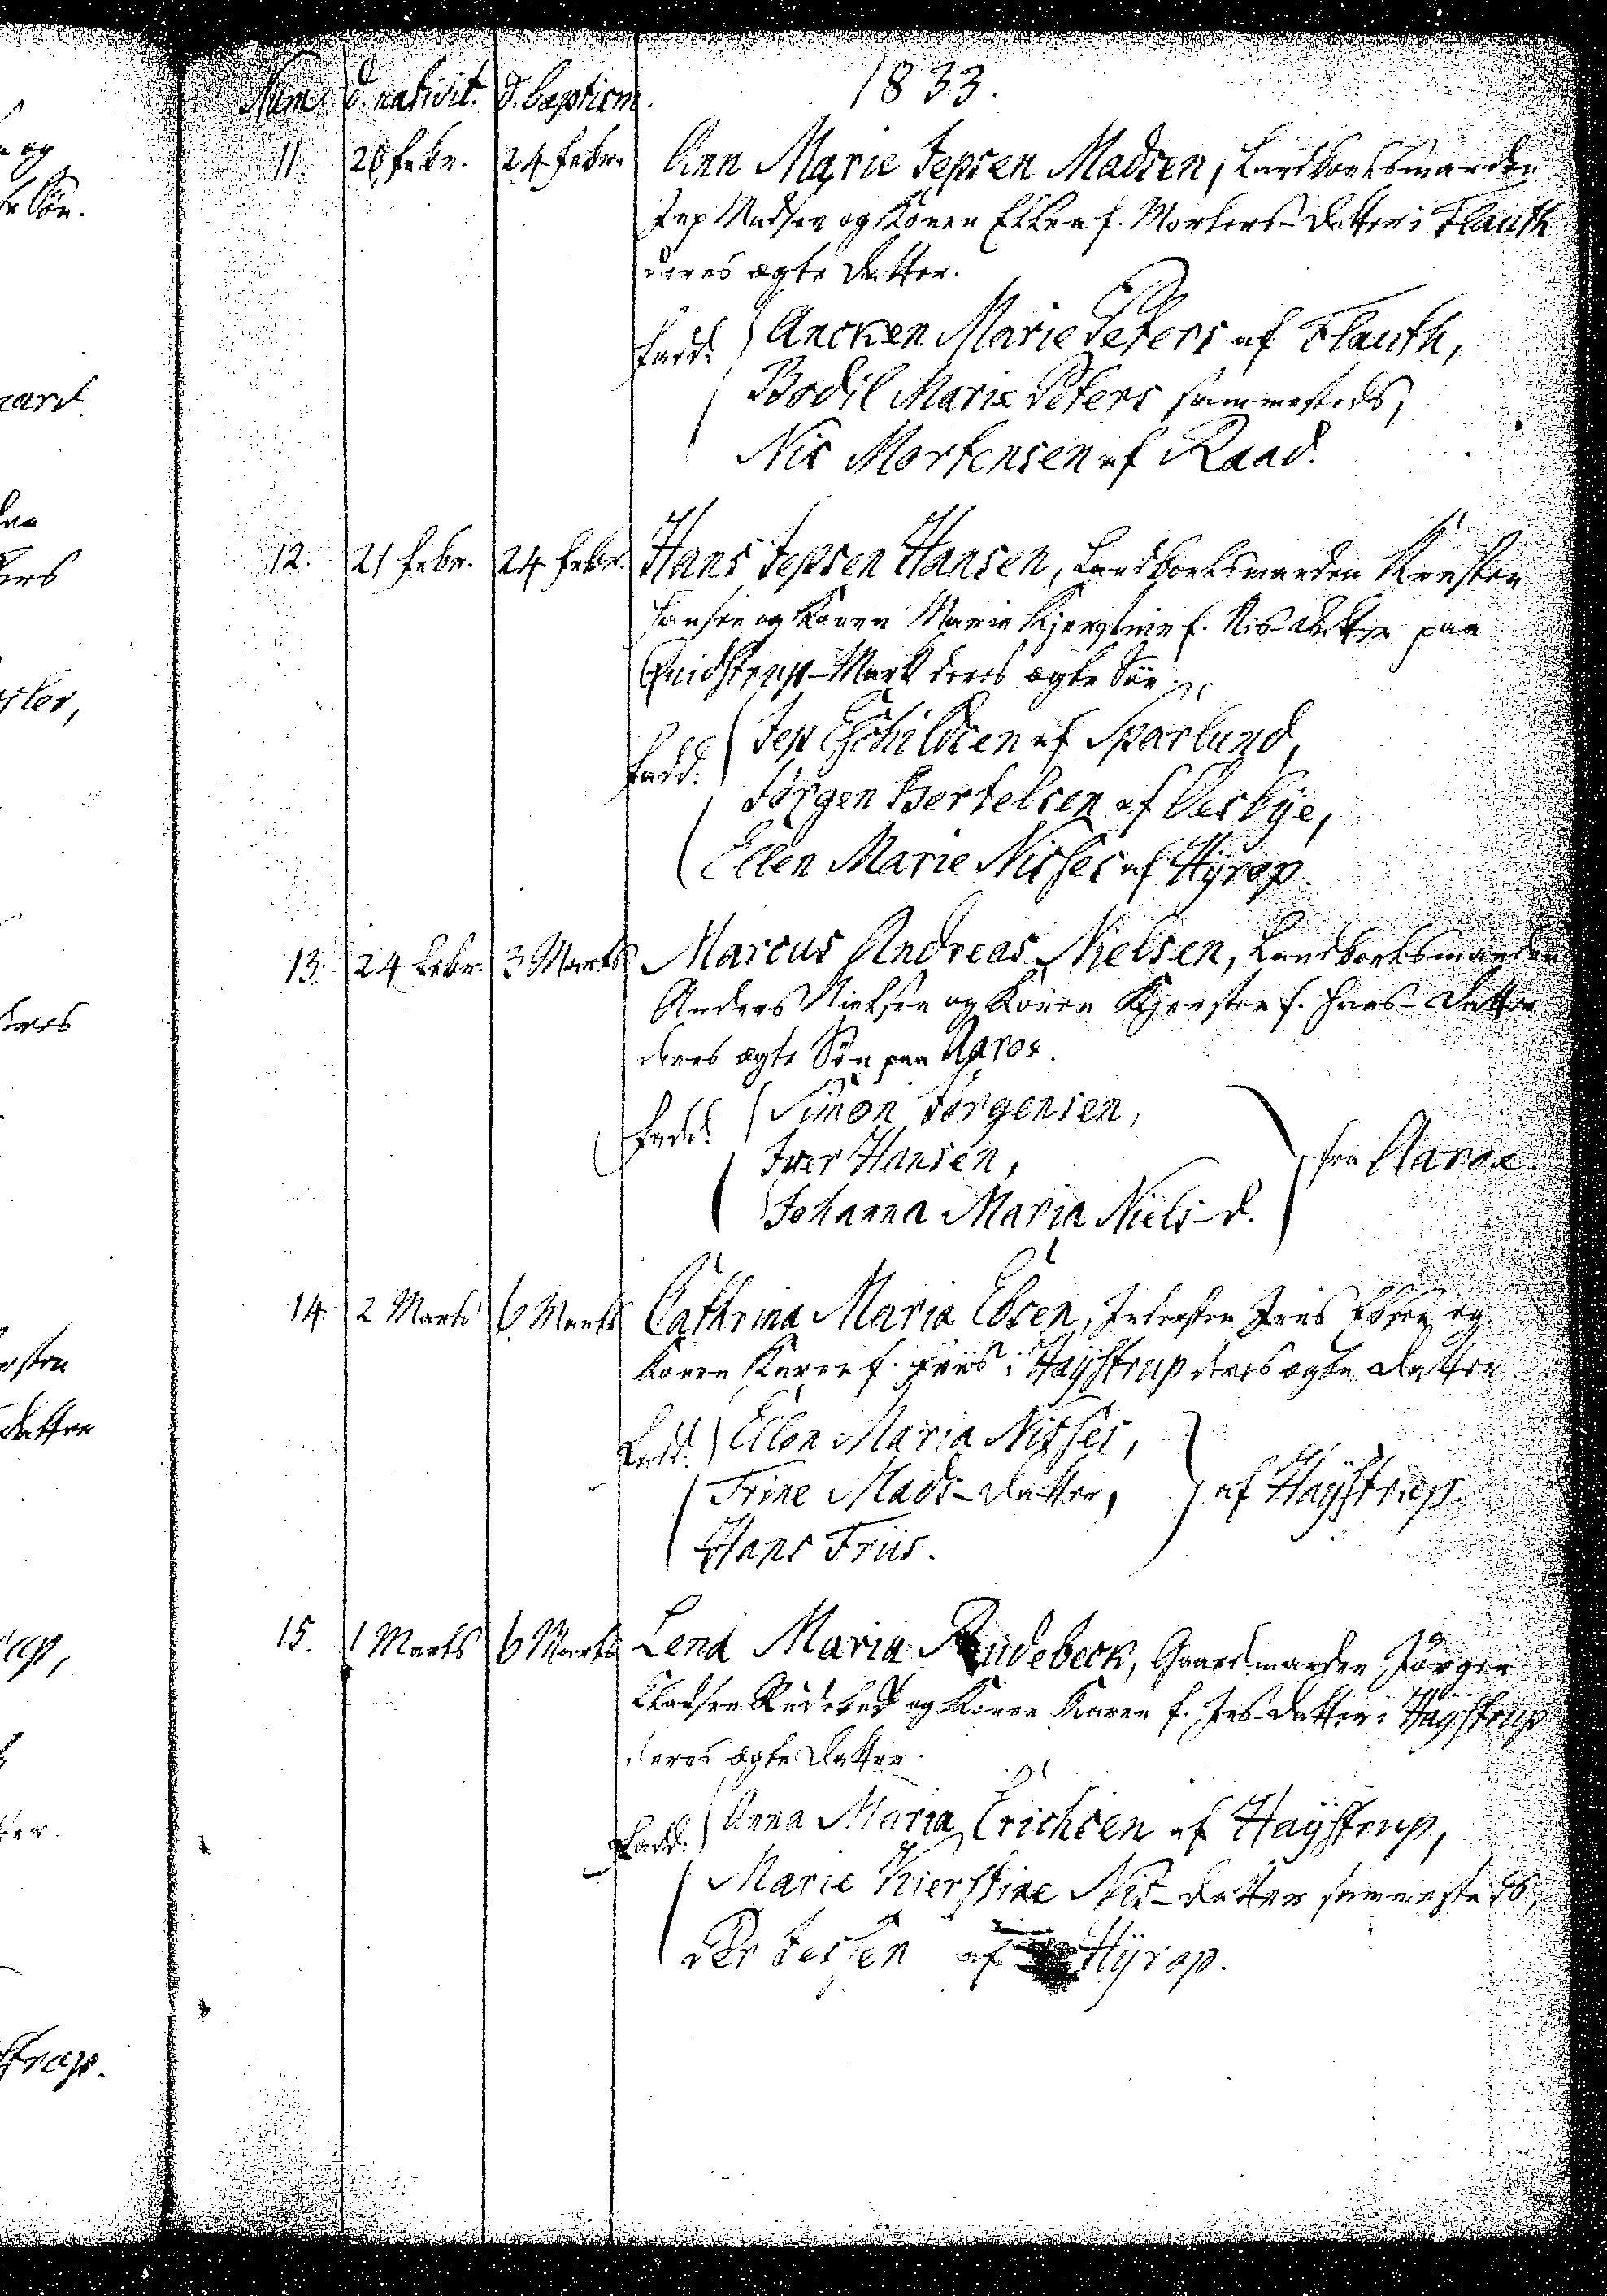 1833.
Num. d. nativit. d. baptism.
11. 20 Febr. 24 Febr. Ann Marie Jepsen Madsen, Landboelsmanden
Jep Madsen og Konen Ellen f. Mortens-Datter i Flauth
deres ægte Datter.
Fadd. Ancken Marie Peters af Flauth,
Bodil Marie Peters sammesteds,
Nis Mortensen af Raad.
12. 21 Febr. 24 Febr. Hans Jepsen Hansen, Landboelsmanden Kresten
Hansen og Konen Marie Kjerstine f. Nis-Datter paa
Quidstrup-Mark deres ægte Søn
Fadd. Jep Eschildsen af Sparlund,
Jørgen Bertelsen af Oesbye,
Ellen Marie Nisses af Hÿrop.
13. 24 Febr. 3 Marts Marcus Andreas Nielsen, Landboelsmanden
Anders Nielsen og Konen Kjersten f. Hans-Datter
deres ægte Søn paa Aarøe.
Fadd. Simon Jørgensen,
Iver Hansen, fra Aarøe.
Johanna Maria Niels-d.
14. 2 Marts 6 Marts Cathrina Maria Ebsen, Indersten Jens Ebsen og
Konen Karen f. Friis i Haÿstrup deres ægte Datter
Fadd. Ellen Maria Nisses,
Trine Mads-Datter, af Haÿstrup
Hans Friis.
15. 1 Marts 6 Marts Lena Maria Rudebeck, Gaardmanden Jørgen
Clausen Rudebeck og Konen Karen f. Jes-Datter i Haÿstrup
deres ægte Datter.
Fadd. Anna Maria Erichsen af Haÿstrup,
Marie Kierstine Nis-Datter sammesteds,
Per Jessen af Hÿrop.